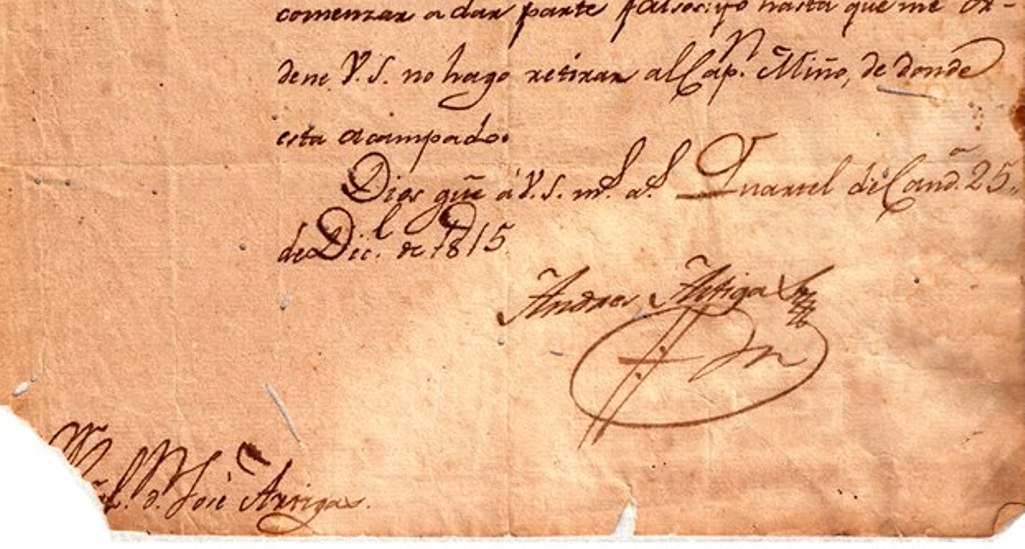 comenzar a dar parte falsos: yo hasta que me or-
dene V. S. no hago retirar al Cap.ⁿ Miño, de donde
esta acampado.
Dios gũe á V. S. m.ˢ a.ˢ Quartel de Cañd. 25
de Dic.ᵉ de 1815
Andres Artigas
D. José Artigas.